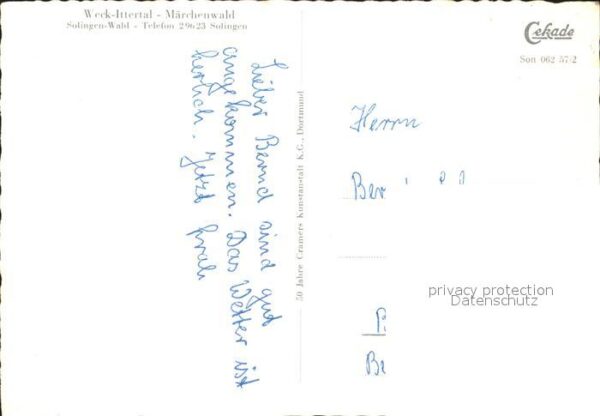 Weck-Ittertal - Märchenwald
Solingen-Wald - Telefon 29623 Solingen
Cekade
Son 062 57/2
Lieber Bernd sind gut
angekommen. Das Wetter ist
herlich. Jetzt
50 Jahre Cramers Kunstanstalt K.G., Dortmund
Herrn
Ber
privacy protection
Datenschutz
P.
Be